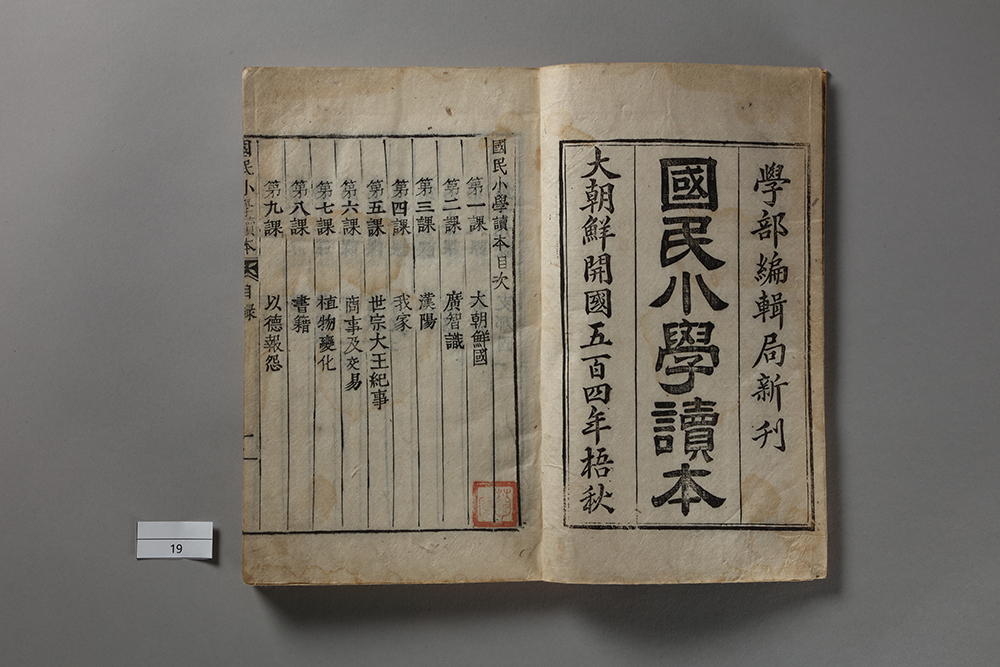 學部編輯局新刊
國民小學讀本
大朝鮮開國五百四年梧秋
國民小學讀本目次
第一課 大朝鮮國
第二課 廣智識
第三課 漢陽
第四課 我家
第五課 世宗大王紀事
第六課 商事及交易
第七課 植物變化
第八課 書籍
第九課 以德報怨
國民小學讀本 目錄 一
19